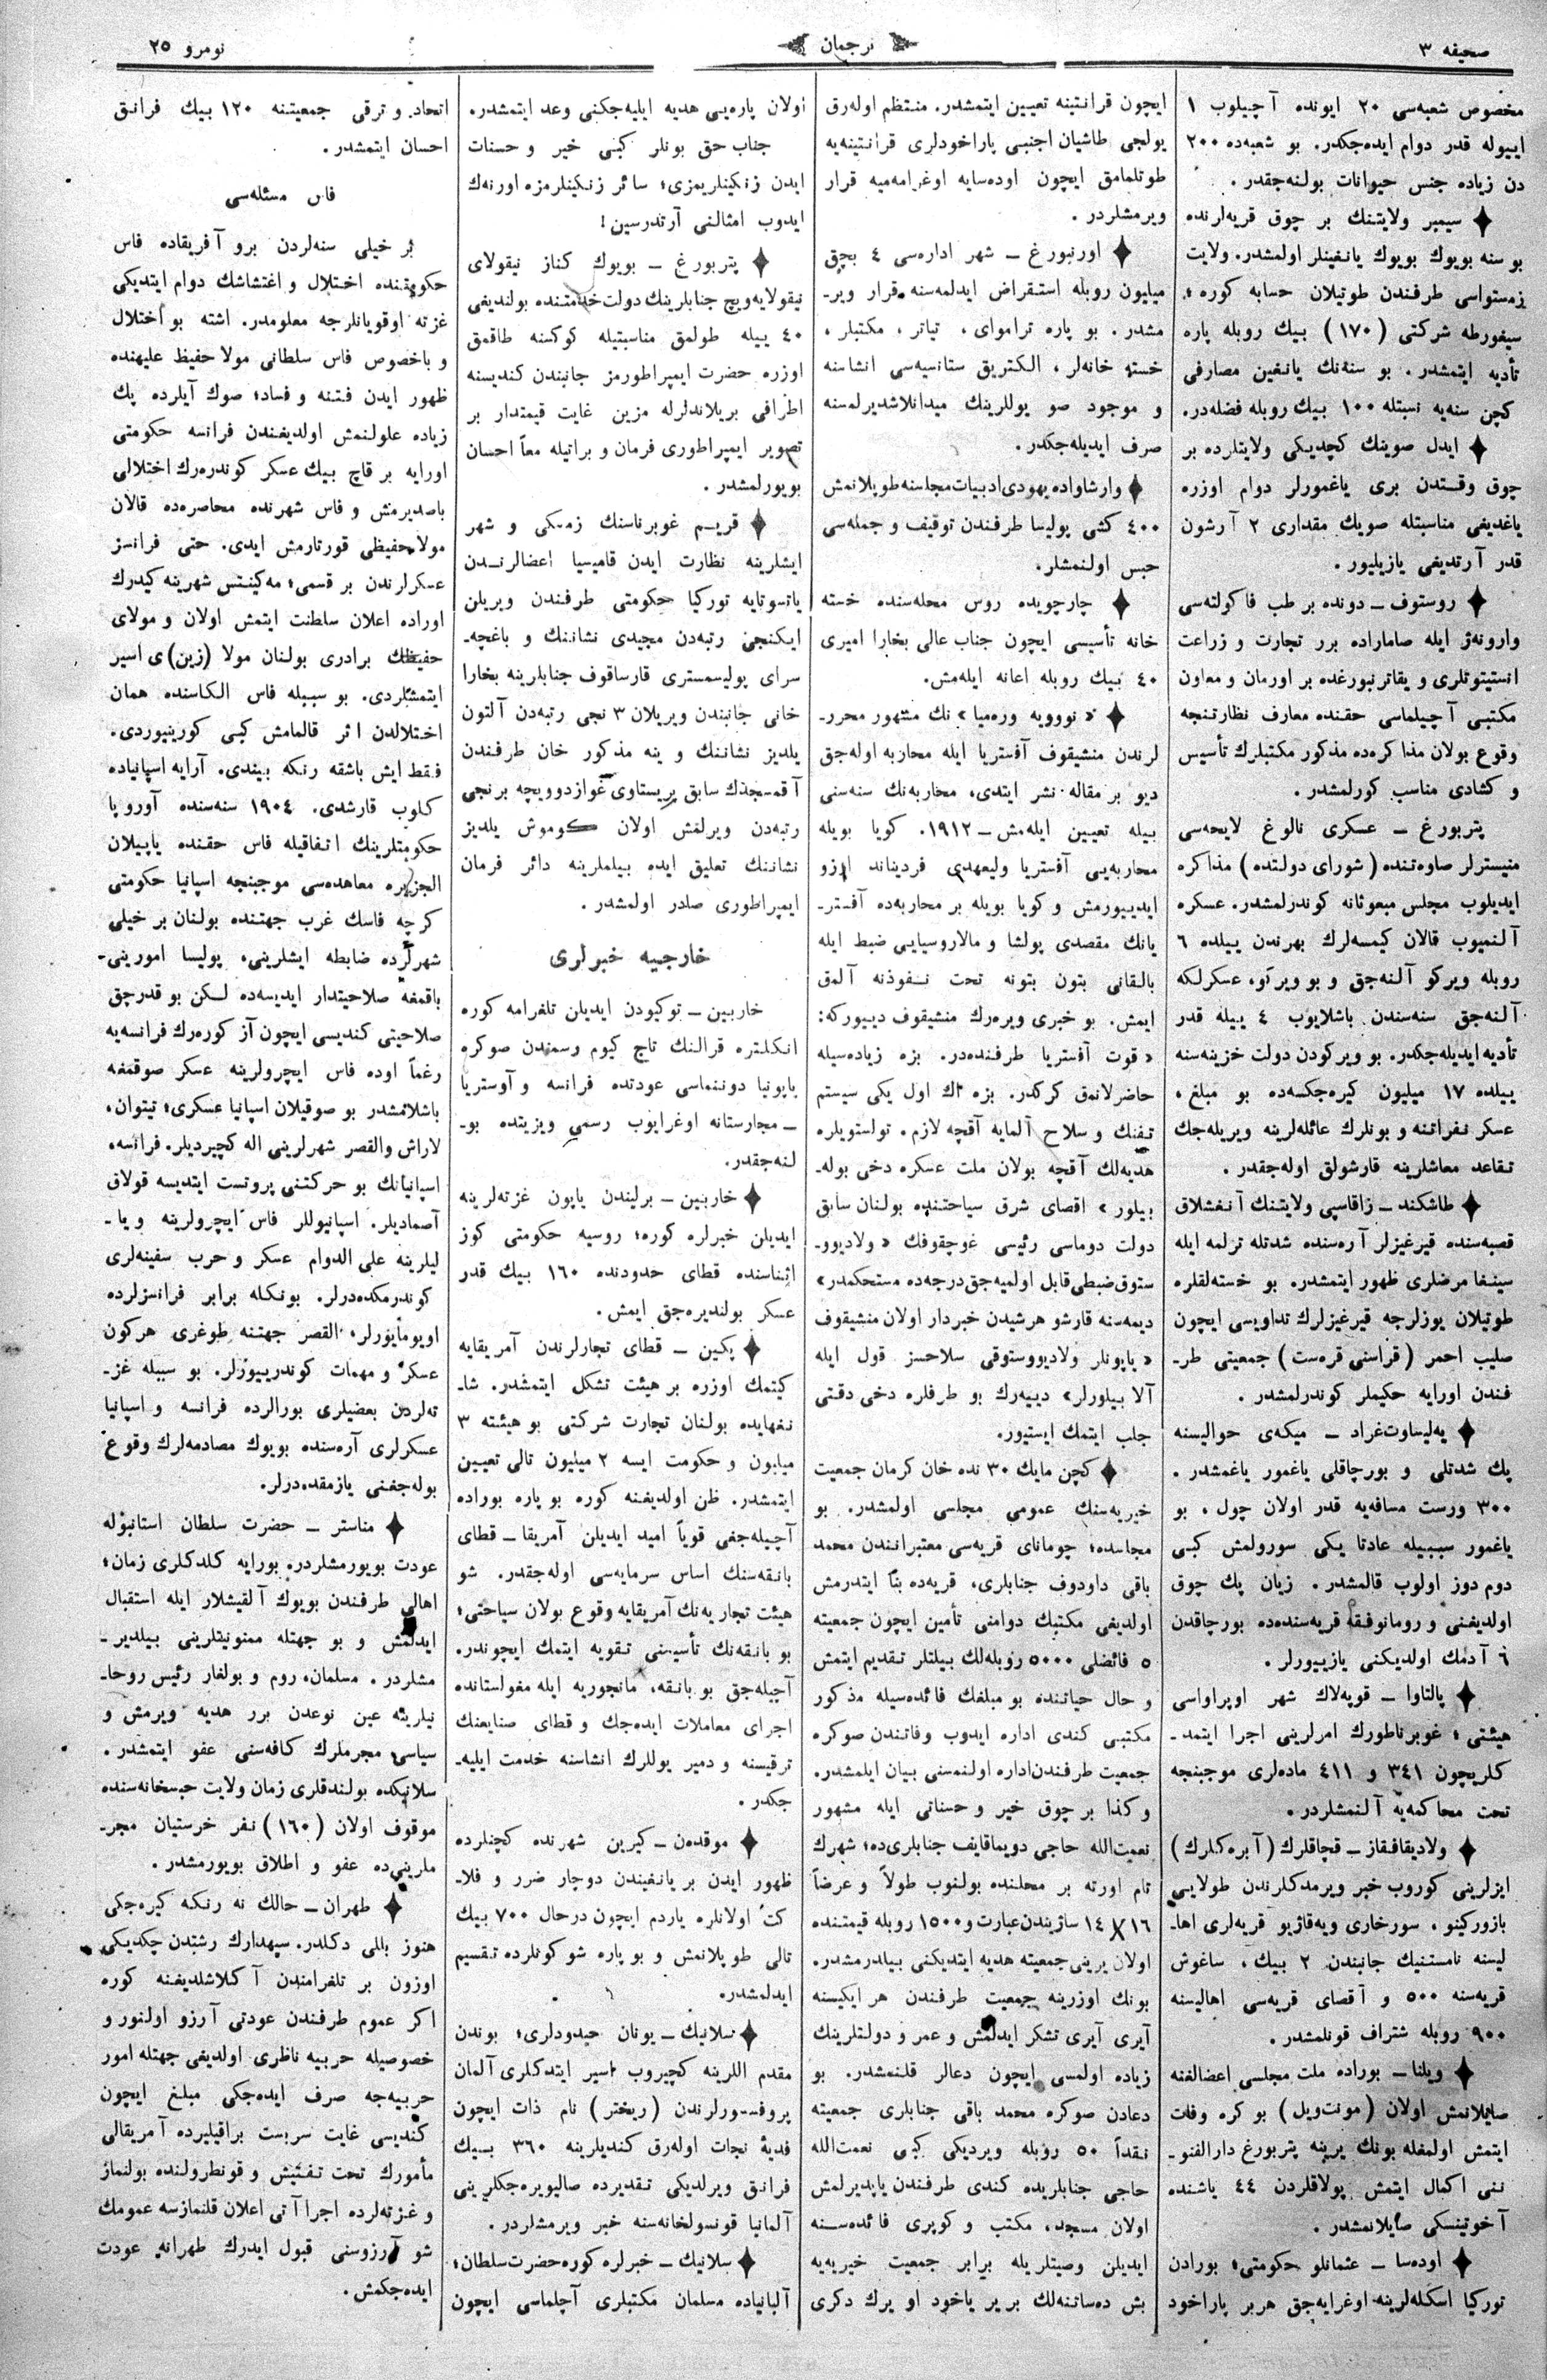 صحیفه ۳
ترجمان
نومرو ۲۵
مخصوص شعبه‌سی ۲۰ ایونده آچیلوب ۱
اییوله قدر دوام ایده‌جكدر. بو شعبه‌ده ۲۰۰
دن زیاده جنس حیوانات بولنه‌جقدر.
سیمبر ولایتنك بر چوق قریه‌لرنده
بو سنه بویوك بویوك یانغینلر اولمشدر. ولایت
زمستواسی طرفندن طوتیلان حسابه كوره؛
سیغورطه شركتی (۱۷۰) بیك روبله پاره
تأدیه ایتمشدر. بو سنه‌نك یانغین مصارفی
كچن سنه‌یه نسبتله ۱۰۰ بیك روبله فضله‌در.
ایدل صوینك كچدیكی ولایتلرده بر
چوق وقتدن بری یاغمورلر دوام اوزره
یاغدیغی مناسبتله صویك مقداری ۲ آرشون
قدر آرتدیغی یازیلیور.
روستوف ـ دونده بر طب فاكولته‌سی
وارونه‌ژ ایله صاماراده برر تجارت و زراعت
انستیتوتلری و یقاترنبورغده بر اورمان و معاون
مكتبی آچیلماسی حقنده معارف نظارتنجه
وقوع بولان مذاكره‌ده مذكور مكتبلرك تأسیس
و كشادی مناسب كورلمشدر.
پتربورغ ـ عسكری نالوغ لایحه‌سی
منیسترلر صاوه‌تنده (شورای دولتده) مذاكره
ایدیلوب مجلس مبعوثانه كوندرلمشدر. عسكره
آلنمیوب قالان كیمسه‌لرك بهرندن ییلده ۶
روبله ویركو آلنه‌جق و بو ویركو، عسكرلكه
آلنه‌جق سنه‌سندن باشلایوب ۴ ییله قدر
تأدیه ایدیله‌جكدر. بو ویركودن دولت خزینه‌سنه
ییلده ۱۷ میلیون كیره‌جكسه‌ده بو مبلغ،
عسكر نفراتنه و بونلرك عائله‌لرینه ویریله‌جك
تقاعد معاشلرینه قارشولق اوله‌جقدر.
طاشكند ـ زاقاسپی ولایتنك آنغشلاق
قصبه‌سنده قیرغیزلر آره‌سنده شدتله تزلمه ایله
سینغا مرضلری ظهور ایتمشدر. بو خسته‌لقلره
طوتیلان یوزلرجه قیرغیزلرك تداویسی ایچون
صلیب احمر (قراسنی قره‌ست) جمعیتی طر-
فندن اورایه حكیملر كوندرلمشدر.
یه‌لیساوت‌غراد ـ میكه‌ی حوالیسنه
پك شدتلی و بورچاقلی یاغمور یاغمشدر.
۳۰۰ ورست مسافه‌یه قدر اولان چول، بو
یاغمور سببیله عادتا یكی سورولمش كبی
دوم دوز اولوب قالمشدر. زیان پك چوق
اولدیغنی و رومانوفقه قریه‌سنده‌ده بورچاقدن
۶ آدمك اولدیكنی یازییورلر.
پالتاوا ـ قوبه‌لاك شهر اوپراواسی
هیئتی؛ غوبرناطورك امرلرینی اجرا ایتمد-
كلریچون ۳۴۱ و ۴۱۱ ماده‌لری موجبنجه
تحت محاكمه‌یه آلنمشلردر.
ولادیقافقاز ـ قچاقلرك (آبره‌كلرك)
ایزلرینی كوروب خبر ویرمدكلرندن طولایی
بازوركینو، سورخاری ویه‌قاژیو قریه‌لری اها-
لیسنه نامستنیك جانبندن ۲ بیك، ساغوش
قریه‌سنه ۵۰۰ و آقصای قریه‌سی اهالیسنه
۹۰۰ روبله شتراف قونلمشدر.
ویلنا ـ بوراده ملت مجلسی اعضالغنه
صایلانمش اولان (مونت‌ویل) بو كره وفات
ایتمش اولمغله بونك یرینه پتربورغ دارالفنو-
ننی اكمال ایتمش پولاقلردن ۴۴ یاشنده
آخوتینسكی صایلانمشدر.
اوده‌سا ـ عثمانلو حكومتی؛ بورادن
توركیا اسكله‌لرینه اوغرایه‌جق هربر پاراخود
ایچون قرانتینه تعیین ایتمشدر. منتظم اوله‌رق
یولجی طاشیان اجنبی پاراخودلری قرانتینه‌یه
طوتلمامق ایچون اوده‌سایه اوغرامه‌میه قرار
ویرمشلردر.
اورنبورغ ـ شهر اداره‌سی ۴ بچق
میلیون روبله استقراض ایدلمه‌سنه قرار ویر-
مشدر. بو پاره تراموای، تیاتر، مكتبلر،
خسته خانه‌لر، الكتریق ستانسیه‌سی انشاسنه
و موجود صو یوللرینك میدانلاشدیرلمسنه
صرف ایدیله‌جكدر.
وارشاواده یهودی ادبیات مجلسنه طوپلانمش
۴۰۰ كشی پولیسا طرفندن توقیف و جمله‌سی
حبس اولنمشلر.
چارچویده روس محله‌سنده خسته
خانه تأسیسی ایچون جناب عالی بخارا امیری
۴۰ بیك روبله اعانه ایله‌مش.
«نوویه وره‌میا» نك مشهور محرر-
لرندن منشیقوف آفستریا ایله محاربه اوله‌جق
دیو بر مقاله نشر ایتدی، محاربه‌نك سنه‌سنی
بیله تعیین ایله‌مش ـ ۱۹۱۲. كویا بویله
محاربه‌یی آفستریا ولیعهدی فردیناند ارزو
ایدییورمش و كویا بویله بر محاربه‌ده آفستر-
یانك مقصدی پولشا و مالاروسیایی ضبط ایله
بالقانی بتون بتونه تحت نفوذنه آلمق
ایمش. بو خبری ویره‌رك منشیقوف دییوركه:
«قوت آفستریا طرفنده‌در. بزه زیاده‌سیله
حاضرلانمق كركدر. بزه اك اول یكی سیستم
تفنك و سلاح آلمایه آقچه لازم. تولستویلره
هدیه‌لك آقچه بولان ملت عسكره دخی بوله-
بیلور» اقصای شرق سیاحتنده بولنان سابق
دولت دوماسی رئیسی غوچقوفك «ولادیوو-
ستوق ضبطی قابل اولمیه‌جق درجه‌ده مستحكمدر»
دیمه‌سنه قارشو هرشیدن خبردار اولان منشیقوف
«یاپونلر ولادیووستوقی سلاحسز قول ایله
آلا بیلورلر» دییه‌رك بو طرفلره دخی دقتی
جلب ایتمك ایستیور.
كچن مایك ۳۰ نده خان كرمان جمعیت
خیریه‌سنك عمومی مجلسی اولمشدر. بو
مجلسده؛ چومانای قریه‌سی معتبرانندن محمد
باقی داودوف جنابلری، قریه‌ده بنا ایتدرمش
اولدیغی مكتبك دوامنی تأمین ایچون جمعیته
۵ فائضلی ۵۰۰۰ روبله‌لك بیلتلر تقدیم ایتمش
و حال حیاتنده بو مبلغك فائده‌سیله مذكور
مكتبی كندی اداره ایدوب وفاتندن صوكره
جمعیت طرفندن اداره اولنمسنی بیان ایلمشدر.
وكذا بر چوق خیر و حسناتی ایله مشهور
نعمت‌الله حاجی دویماقایف جنابلری‌ده؛ شهرك
تام اورته بر محلنده بولنوب طولاً و عرضاً
۱۶ × ۱۴ ساژیندن عبارت و ۱۵۰۰ روبله قیمتنده
اولان یرینی جمعیته هدیه ایتدیكنی بیلدرمشدر.
بونك اوزرینه جمعیت طرفندن هر ایكیسنه
آیری آیری تشكر ایدلمش و عمر و دولتلرینك
زیاده اولمسی ایچون دعالر قلنمشدر. بو
دعادن صوكره محمد باقی جنابلری جمعیته
نقداً ۵۰ روبله ویردیكی كبی نعمت‌الله
حاجی جنابلریده كندی طرفندن یاپدیرلمش
اولان مسجد، مكتب و كوپری فائده‌سنه
ایدیلن وصیتلریله برابر جمعیت خیریه‌یه
بش ده‌ساتنه‌لك بر یر یاخود او یرك دكری
اولان پاره‌یی هدیه ایلیه‌جكنی وعد ایتمشدر.
جناب حق بونلر كبی خیر و حسنات
ایدن زنكینلریمزی؛ سائر زنكینلرمزه اورنه‌ك
ایدوب امثالنی آرتدرسین!
پتربورغ ـ بویوك كناز نیقولای
نیقولایه‌ویچ جنابلرینك دولت خدمتنده بولندیغی
۴۰ ییله طولمق مناسبتیله كوكسنه طاقمق
اوزره حضرت ایمپراطورمز جانبندن كندیسنه
اطرافی بریلاندلرله مزین غایت قیمتدار بر
تصویر ایمپراطوری فرمان و براتیله معاً احسان
بویورلمشدر.
قریم غوبرناسنك زمسكی و شهر
ایشلرینه نظارت ایدن قامیسیا اعضالرندن
یاتسوتایه توركیا حكومتی طرفندن ویریلن
ایكنجی رتبه‌دن مجیدی نشاننك و باغچه-
سرای پولیسمستری قارساقوف جنابلرینه بخارا
خانی جانبندن ویریلان ۳ نجی رتبه‌دن آلتون
یلدیز نشاننك و ینه مذكور خان طرفندن
آقمسجدك سابق پریستاوی غوازدوویچه برنجی
رتبه‌دن ویرلمش اولان كوموش یلدیز
نشاننك تعلیق ایده بیلملرینه دائر فرمان
ایمپراطوری صادر اولمشدر.
خارجیه خبرلری
خاربین ـ توكیودن ایدیلن تلغرامه كوره
انكلتره قرالنك تاج كیوم رسمندن صوكره
یاپونیا دوننماسی عودتنده فرانسه و آوستریا
ـ مجارستانه اوغرایوب رسمی ویزیتده بو-
لنه‌جقدر.
خاربین ـ برلیندن یاپون غزته‌لرینه
ایدیلن خبرلره كوره؛ روسیه حكومتی كوز
اثناسنده قطای حدودنده ۱۶۰ بیك قدر
عسكر بولندیره‌جق ایمش.
پكین ـ قطای تجارلرندن آمریقایه
كیتمك اوزره بر هیئت تشكل ایتمشدر. شا-
نغهایده بولنان تجارت شركتی بو هیئته ۳
میلیون و حكومت ایسه ۲ میلیون تالی تعیین
ایتمشدر. ظن اولدیغنه كوره بو پاره بوراده
آچیله‌جغی قویاً امید ایدیلن آمریقا ـ قطای
بانقه‌سنك اساس سرمایه‌سی اوله‌جقدر. شو
هیئت تجاریه‌نك آمریقایه وقوع بولان سیاحتی؛
بو بانقه‌نك تأسیسنی تقویه ایتمك ایچوندر.
آچیله‌جق بو بانقه، مانجوریه ایله مغولستانده
اجرای معاملات ایده‌جك و قطای صنایعنك
ترقیسنه و دمیر یوللرك انشاسنه خدمت ایلیه-
جكدر.
موقدن ـ كیرین شهرنده كچنلرده
ظهور ایدن بر یانغیندن دوچار ضرر و فلا-
كت اولانلره یاردم ایچون درحال ۷۰۰ بیك
تالی طوپلانمش و بو پاره شو كونلرده تقسیم
ایدلمشدر.
سلانیك ـ یونان حیدودلری؛ بوندن
مقدم اللرینه كچیروب اسیر ایتدكلری آلمان
پروفسورلرندن (ریختر) نام ذات ایچون
فدیهٔ نجات اوله‌رق كندیلرینه ۳۶۰ بیك
فرانق ویرلدیكی تقدیرده صالیویره‌جكلرینی
آلمانیا قونسولخانه‌سنه خبر ویرمشلردر.
سلانیك ـ خبرلره كوره حضرت سلطان؛
آلبانیاده مسلمان مكتبلری آچلماسی ایچون
اتحاد و ترقی جمعیتنه ۱۲۰ بیك فرانق
احسان ایتمشدر.
فاس مسئله‌سی
بر خیلی سنه‌لردن برو آفریقاده فاس
حكومتنده اختلال و اغتشاشك دوام ایتدیكی
غزته اوقویانلرجه معلومدر. اشته بو اختلال
و باخصوص فاس سلطانی مولا حفیظ علیهنده
ظهور ایدن فتنه و فساد؛ صوك آیلرده پك
زیاده علولنمش اولدیغندن فرانسه حكومتی
اورایه بر قاچ بیك عسكر كوندره‌رك اختلالی
باصدیرمش و فاس شهرنده محاصره‌ده قالان
مولا حفیظی قورتارمش ایدی. حتی فرانسز
عسكرلرندن بر قسمی؛ مه‌كینتس شهرینه كیدرك
اوراده اعلان سلطنت ایتمش اولان و مولای
حفیظك برادری بولنان مولا (زین)ی اسیر
ایتمشلردی. بو سببله فاس الكاسنده همان
اختلالدن اثر قالمامش كبی كورینیوردی.
فقط ایش باشقه رنكه بیندی. آرایه اسپانیاده
كلوب قارشدی. ۱۹۰۴ سنه‌سنده آوروپا
حكومتلرینك اتفاقیله فاس حقنده یاپیلان
الجزیره معاهده‌سی موجبنجه اسپانیا حكومتی
كرچه فاسك غرب جهتنده بولنان بر خیلی
شهرلرده ضابطه ایشلرینی، پولیسا امورینی-
باقمغه صلاحیتدار ایدیسه‌ده لكن بو قدرجق
صلاحیتی كندیسی ایچون آز كوره‌رك فرانسه‌یه
رغماً اوده فاس ایچرولرینه عسكر صوقمغه
باشلامشدر بو صوقیلان اسپانیا عسكری؛ تیتوان،
لاراش والقصر شهرلرینی اله كچیردیلر. فرانسه،
اسپانیانك بو حركتنی پروتست ایتدیسه قولاق
آصمادیلر. اسپانیوللر فاس ایچرولرینه و یا-
لیلرینه علی الدوام عسكر و حرب سفینه‌لری
كوندرمكده‌درلر. بونكله برابر فرانسزلرده
اویومایورلر، القصر جهتنه طوغری هركون
عسكر و مهمات كوندرییورلر. بو سببله غز-
ته‌لردن بعضیلری بورالرده فرانسه و اسپانیا
عسكرلری آره‌سنده بویوك مصادمه‌لرك وقوع
بوله‌جغنی یازمقده‌درلر.
مناستر ـ حضرت سلطان استانبوله
عودت بویورمشلردر. بورایه كلدكلری زمان؛
اهالی طرفندن بویوك آلقیشلار ایله استقبال
ایدلمش و بو جهتله ممنونیتلرینی بیلدیر-
مشلردر. مسلمان، روم و بولغار رئیس روحا-
نیلرینه عین نوعدن برر هدیه ویرمش و
سیاسی مجرملرك كافه‌سنی عفو ایتمشدر.
سلانیكده بولندقلری زمان ولایت حبسخانه‌سنده
موقوف اولان (۱۶۰) نفر خرستیان مجر-
ملرینی‌ده عفو و اطلاق بویورمشدر.
طهران ـ حالك نه رنكه كیره‌جكی
هنوز بللی دكلدر. سپهدارك رشتدن چكدیكی
اوزون بر تلغرامندن آكلاشلدیغنه كوره
اكر عموم طرفندن عودتی آرزو اولنور و
خصوصیله حربیه ناظری اولدیغی جهتله امور
حربیه‌جه صرف ایده‌جكی مبلغ ایچون
كندیسی غایت سربست براقیلیرده آمریقالی
مأمورك تحت تفتیش و قونطرولنده بولنماز
و غزته‌لرده اجراآتی اعلان قلنمازسه عمومك
شو آرزوسنی قبول ایدرك طهرانه عودت
ایده‌جكمش.